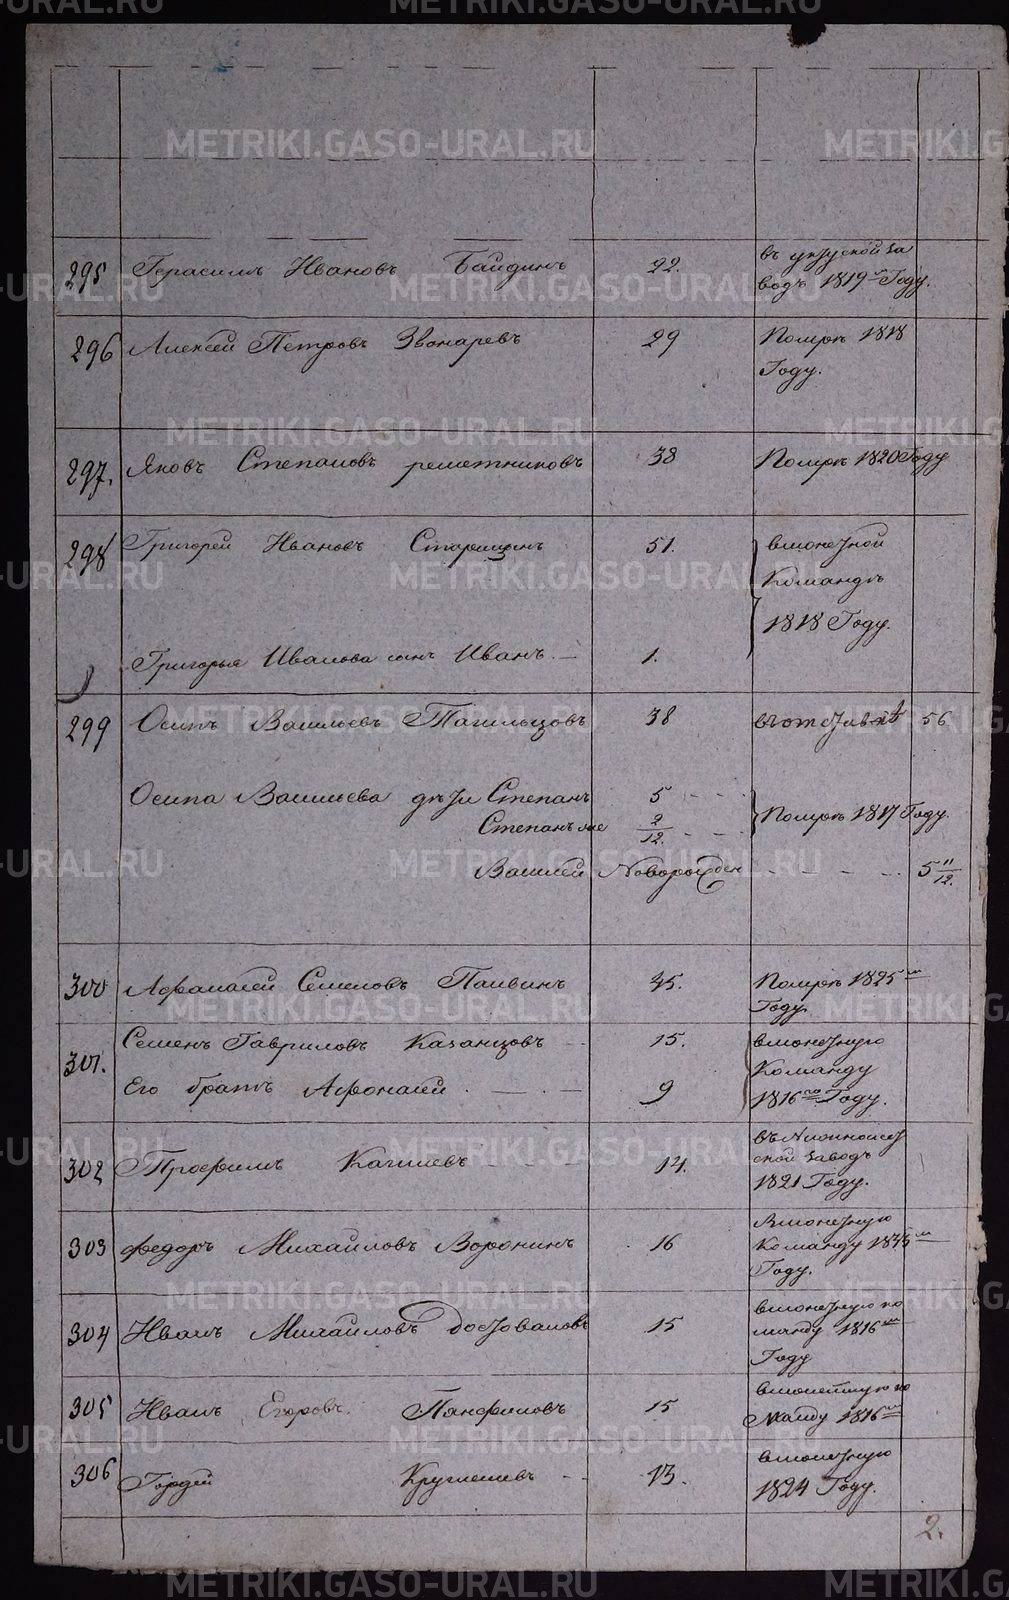 METRIKI.GASO-URAL.RU
295 Герасимъ Ивановъ Байдинъ 22. въ уктуской за
водъ 1819 го Году.
296 Алексей Петровъ Звонаревъ 29 Помре 1818
Году.
297. Яковъ Степановъ решетниковъ 38 Помре 1820 Году
298 Григорей Ивановъ 51. вмонетной
Команде
1818 Году.
Григорья Иванова сынъ Иванъ. 1.
299 Осипъ Васильевъ Тагильцовъ 38 вотставкѣ 56
Осипа Васильева дѣти Степанъ 5
Степанъ же 2/12. Помре 1817 Году.
Василей Новорожден 5 11/12.
300 Афанасей Семеновъ Паивинъ 45. Помре 1825 го
Году.
301. Семенъ Гавриловъ Казанцовъ 15. вмонетную
Команду
Его братъ Афонасей 9 1816 го Году.
302 Трофимъ 14. въ Нижноисет
ской заводъ
1821 Году.
303 Федоръ Михаиловъ Воронинъ 16 Вмонетную
Команду го
Году.
304 Иванъ Михаиловъ 15 вмонетную ко
манду 1816 го
Году
305 Иванъ Егоровъ Панфиловъ 15 вмонетную ко
манду 1816 го
306 Гордей Круглешевъ 13. вмонетную
1824 Году.
2.